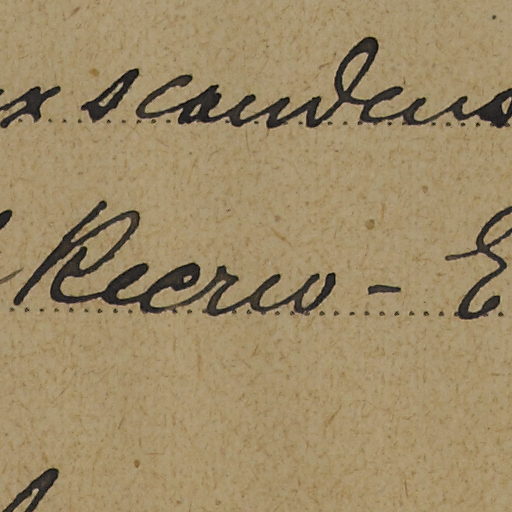 x scandens
Recreo - E